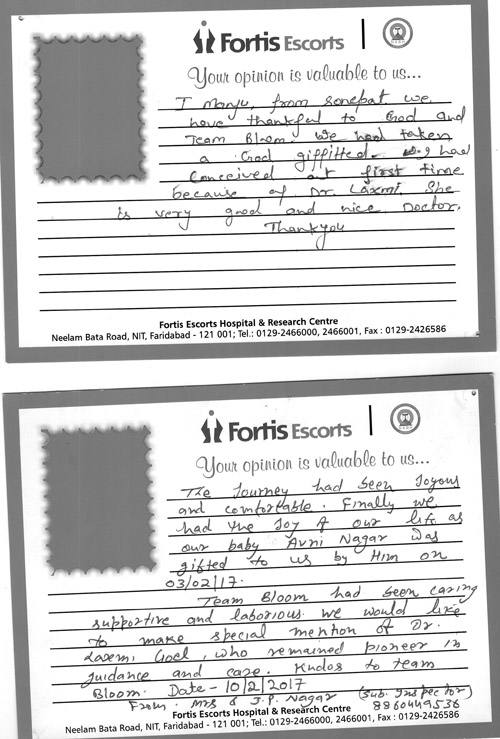 Fortis Escorts
Your opinion is valuable to us...
I manju, from sonepat. we
have thankful to God and
Team Bloom. We had taken
a God giffitted. I had
Conceived at first time
because of Dr. Laxmi. She
is very good and nice Doctor.
Thankyou
Fortis Escorts Hospital & Research Centre
Neelam Bata Road, NIT, Faridabad - 121 001; Tel.: 0129-2466000, 2466001, Fax : 0129-2426586
Fortis Escorts
Your opinion is valuable to us...
The Journey had been Joyous
and comfortable. Finally we
had the Joy of our life as
our baby Avni Nagar was
gifted to us by Him on
03/02/17.
Team Bloom had been caring
supportive and laborious. we would like
to make special mention of Dr.
Laxmi Goel, who remained pioneer in
guidance and care. Kudos to team
Bloom. Date - 10/2/2017
From. Mrs & J.P. Nagar (Sub. Inspector)
8860449536
Fortis Escorts Hospital & Research Centre
Neelam Bata Road, NIT, Faridabad - 121 001; Tel.: 0129-2466000, 2466001, Fax : 0129-2426586